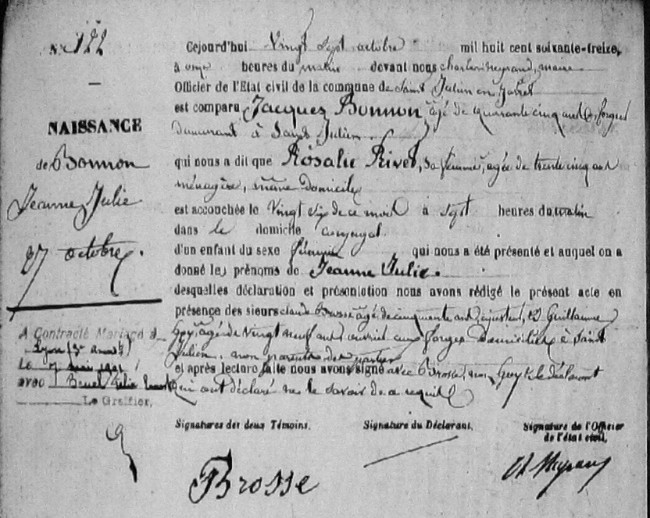 N. 122
NAISSANCE
de Bonnon
Jeanne Julie
27 octobre.
A Contracté Mariage à
Lyon
le 7 mai
avec Bruel
Le Greffier,
Cejourd'hui Vingt Sept octobre mil huit cent soixante-treize,
à onze heures du matin devant nous Charles Meyrand, maire
Officier de l'Etat civil de la commune de Saint Julien en Jarret
est comparu Jacques Bonnon âgé de quarante cinq ans forges
demeurant à Saint Julien
qui nous a dit que Rosalie Rivet, sa femme, agée de trente cinq ans
ménagère, même domicile
est accouchée le Vingt Six de ce mois à Sept heures du matin
dans le domicile conjugal
d'un enfant du sexe féminin qui nous a été présenté et auquel on a
donné les prénoms de Jeanne Julie.
desquelles déclaration et présentation nous avons rédigé le présent acte en
présence des sieurs claude Brosse âgé de cinquante ans, ajusteur, & Guillaume
Guy âgé de Vingt neuf ans ouvrier aux forges Domiciliés à Saint
Julien. non parents des parties
et après lecture faite nous avons signé avec Brosse, non Guy & le déclarant
qui ont déclaré ne le savoir de ce requis
Signatures des deux Témoins. Signature du Déclarant. Signature de l'Officier
de l'état civil,
Brosse
Ch Meyrand